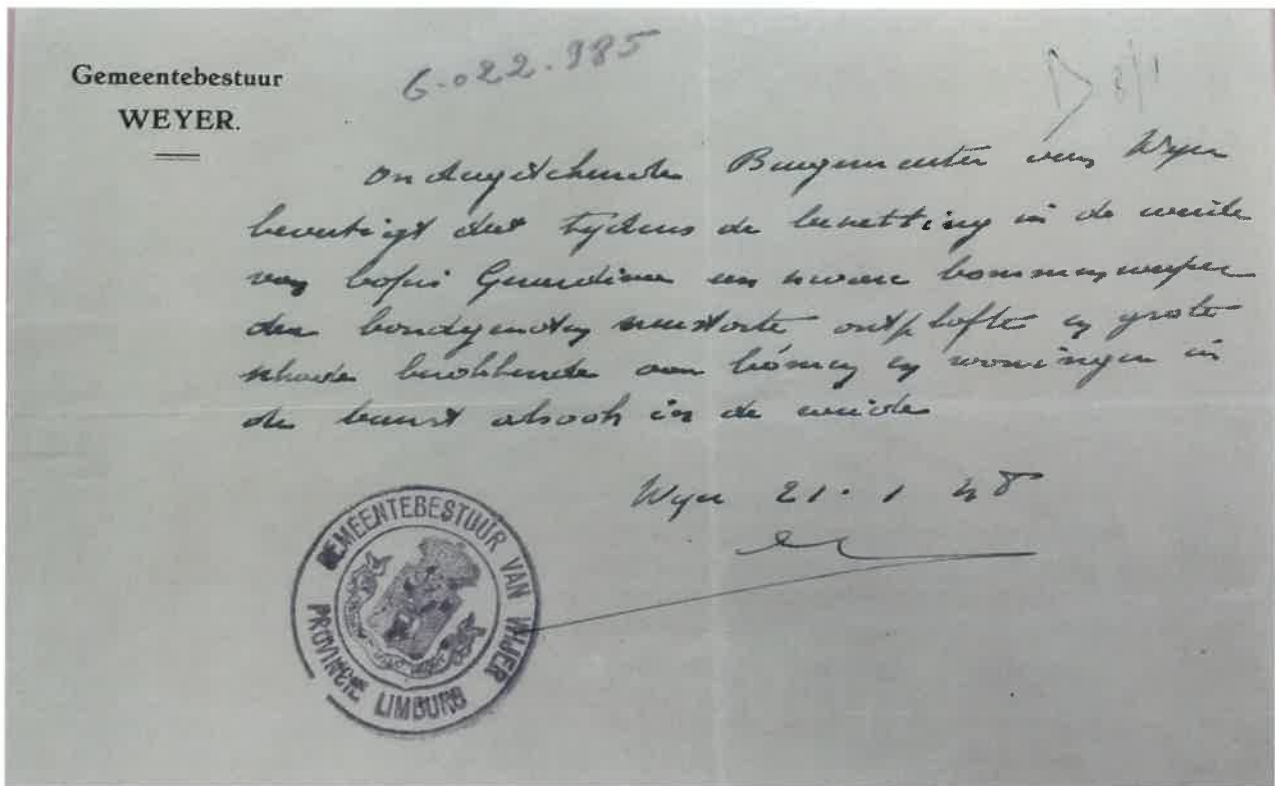 Gemeentebestuur
WEYER.
6.022.985
D 8/1
Ondergetekende Burgemeester van Wyer
bevestigt dat tydens de bezetting in de weide
van Gerardine een zware bommenwerper
der bondgenoten neerstorte ontplofte en grote
schade berokkende aan bómen en woningen in
de buurt alsook in de weide
Wyer 21.1 48
GEMEENTEBESTUUR VAN WIJER
PROVINCIE LIMBURG